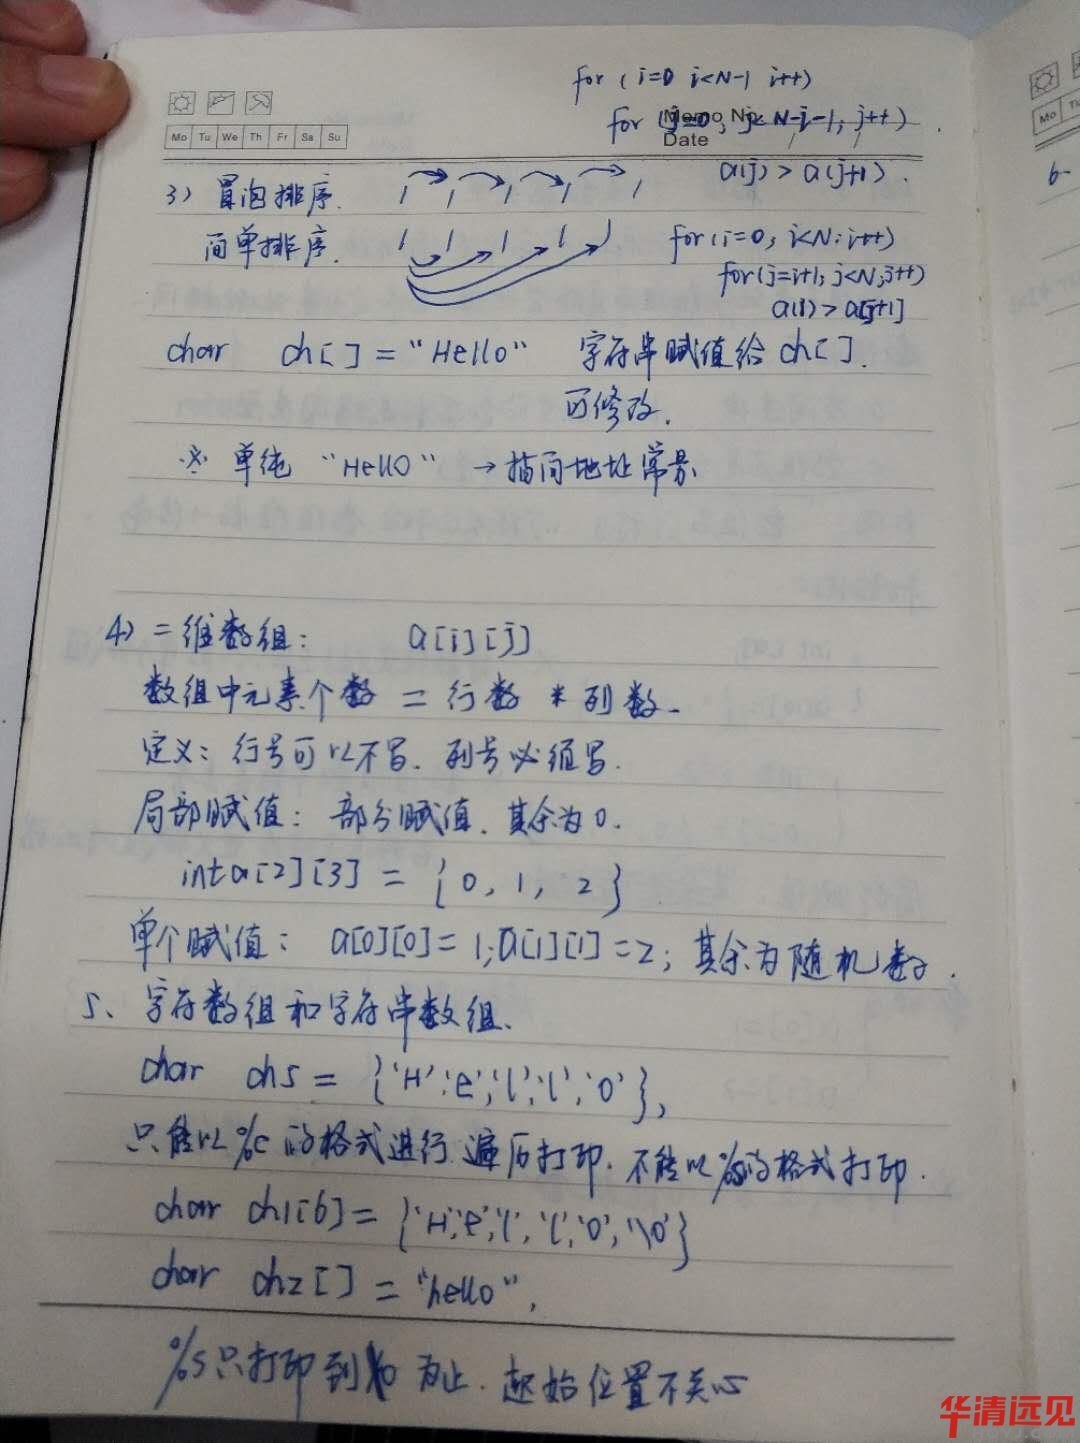 for (i=0 i<N-1 i++)
for (j=0; j<N-i-1; j++)
Memo No.
Date
Mo Tu We Th Fr Sa Su
a(j) > a(j+1).
3) 冒泡排序.
简单排序.
for(i=0; i<N; i++)
for(j=i+1; j<N; j++)
a(i) > a[j+1]
char ch[] = "Hello" 字符串赋值给 ch[].
可修改.
※ 单纯 "Hello" → 指向地址常量
4) 二维数组: a[i][j]
数组中元素个数 = 行数 * 列数.
定义: 行号可以不写. 列号必须写.
局部赋值: 部分赋值. 其余为0.
int a[2][3] = {0, 1, 2}
单个赋值: a[0][0]=1; a[1][1]=2; 其余为随机数.
5、字符数组和字符串数组.
char ch5 = {'H','e','l','l','o'},
只能以%c的格式进行遍历打印. 不能以%s的格式打印.
char ch1[6] = {'H','e','l','l','o','\0'}
char ch2[] = "hello",
%s只打印到\0为止. 起始位置不关心
华清远见
Mo
6-